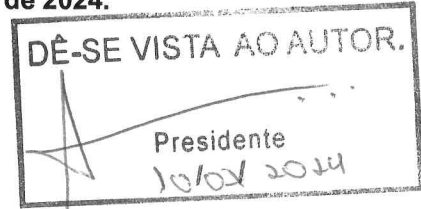 de 2024.
DÊ-SE VISTA AO AUTOR.
Presidente
2024